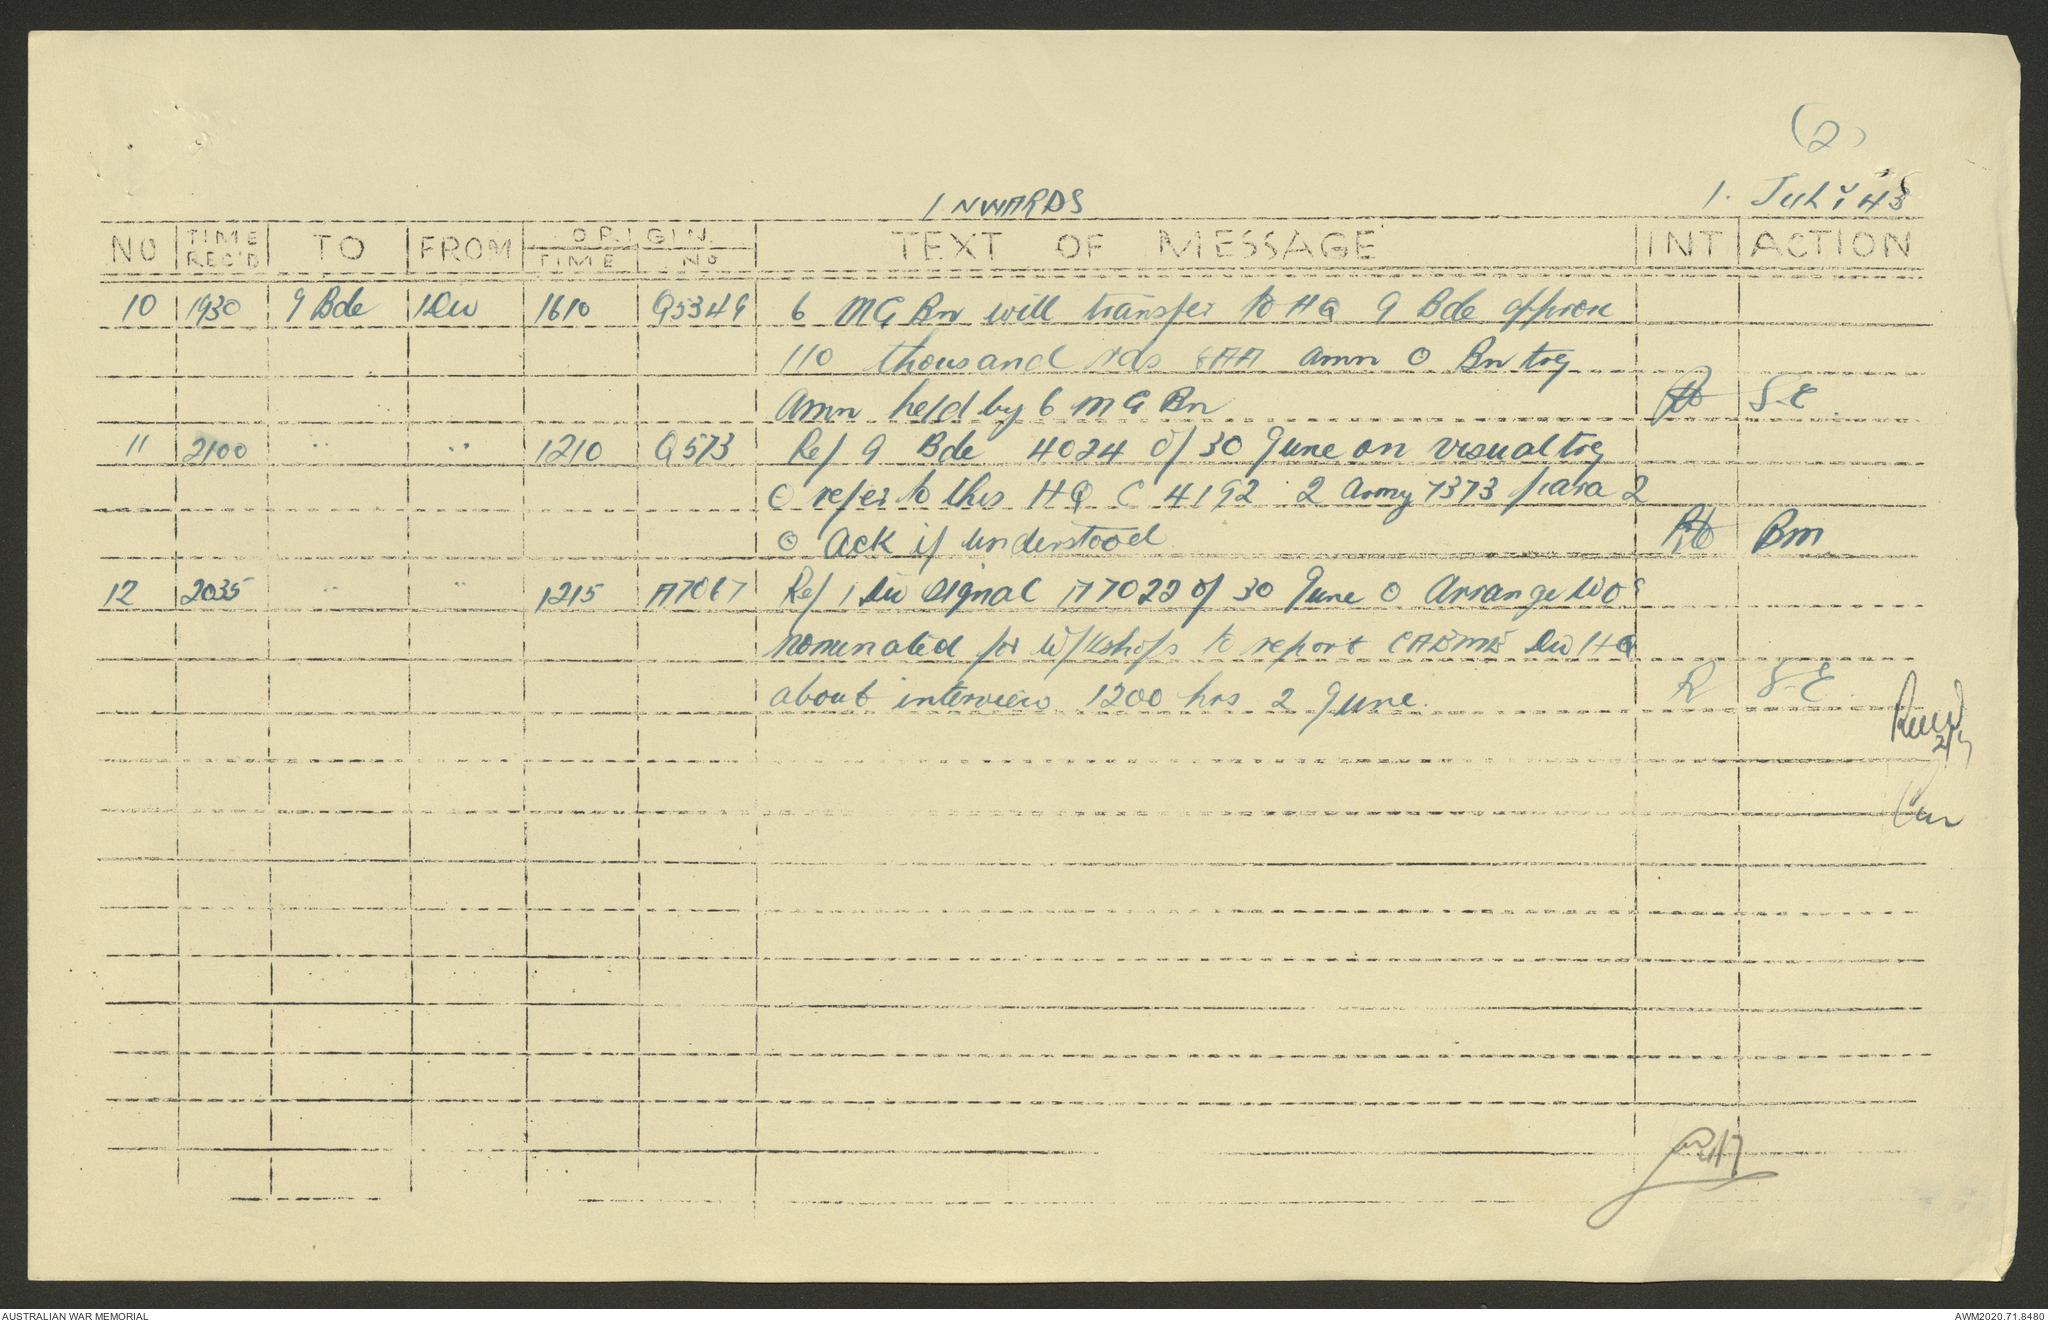 (2)
INWARDS
1. July 43
NO TIME REC'D TO FROM ORIGIN. TIME NO TEXT OF MESSAGE INT ACTION
10 1930 9 Bde 1 Div 1610 Q5349 6 MG Bn will transfer to HQ 9 Bde approx
110 thousand rds SAA amn O Bn trg
amn held by 6 MG Bn S.C.
11 2100 " " 1210 Q573 Ref 9 Bde 4024 of 30 June on visual trg
O refer to this HQ C 4192 2 Army 7373 para 2
O Ack if understood BM
12 2035 " " 1215 A7067 Ref 1 Div signal A7022 of 30 June O Arrange WOs
nominated for W/kshops to report CAEME Div HQ
about interview 1200 hrs 2 June. R S.C.
2/7
2/7
AUSTRALIAN WAR MEMORIAL
AWM2020.71.8480